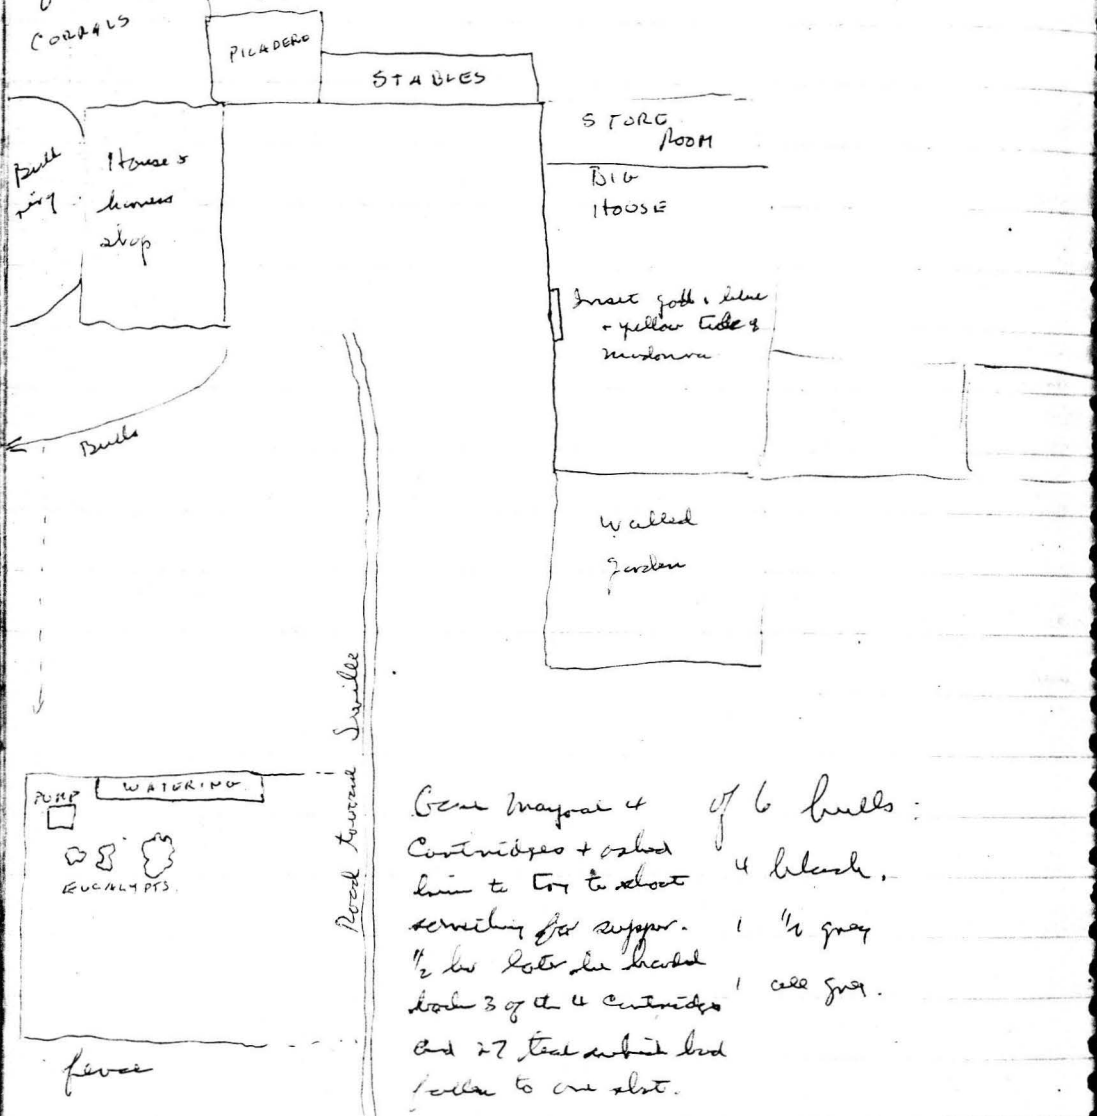 CORRALS
PICADERO
STABLES
STORE
ROOM
BIG
HOUSE
Bull
ring
House &
harness
shop
Inset gold & blue
+ yellow tile of
Madonna
Bulls
Walled
garden
Road toward Seville
PUMP
WATERING
EUCALYPTS.
fence
Gave Mayoral 4
Cartridges + asked
him to try to shoot
something for supper.
1/2 hr later he handed
back 3 of the 4 Cartridges
and 27 teal which had
fallen to one shot.
of 6 bulls:
4 black.
1 1/2 grey
1 all grey.